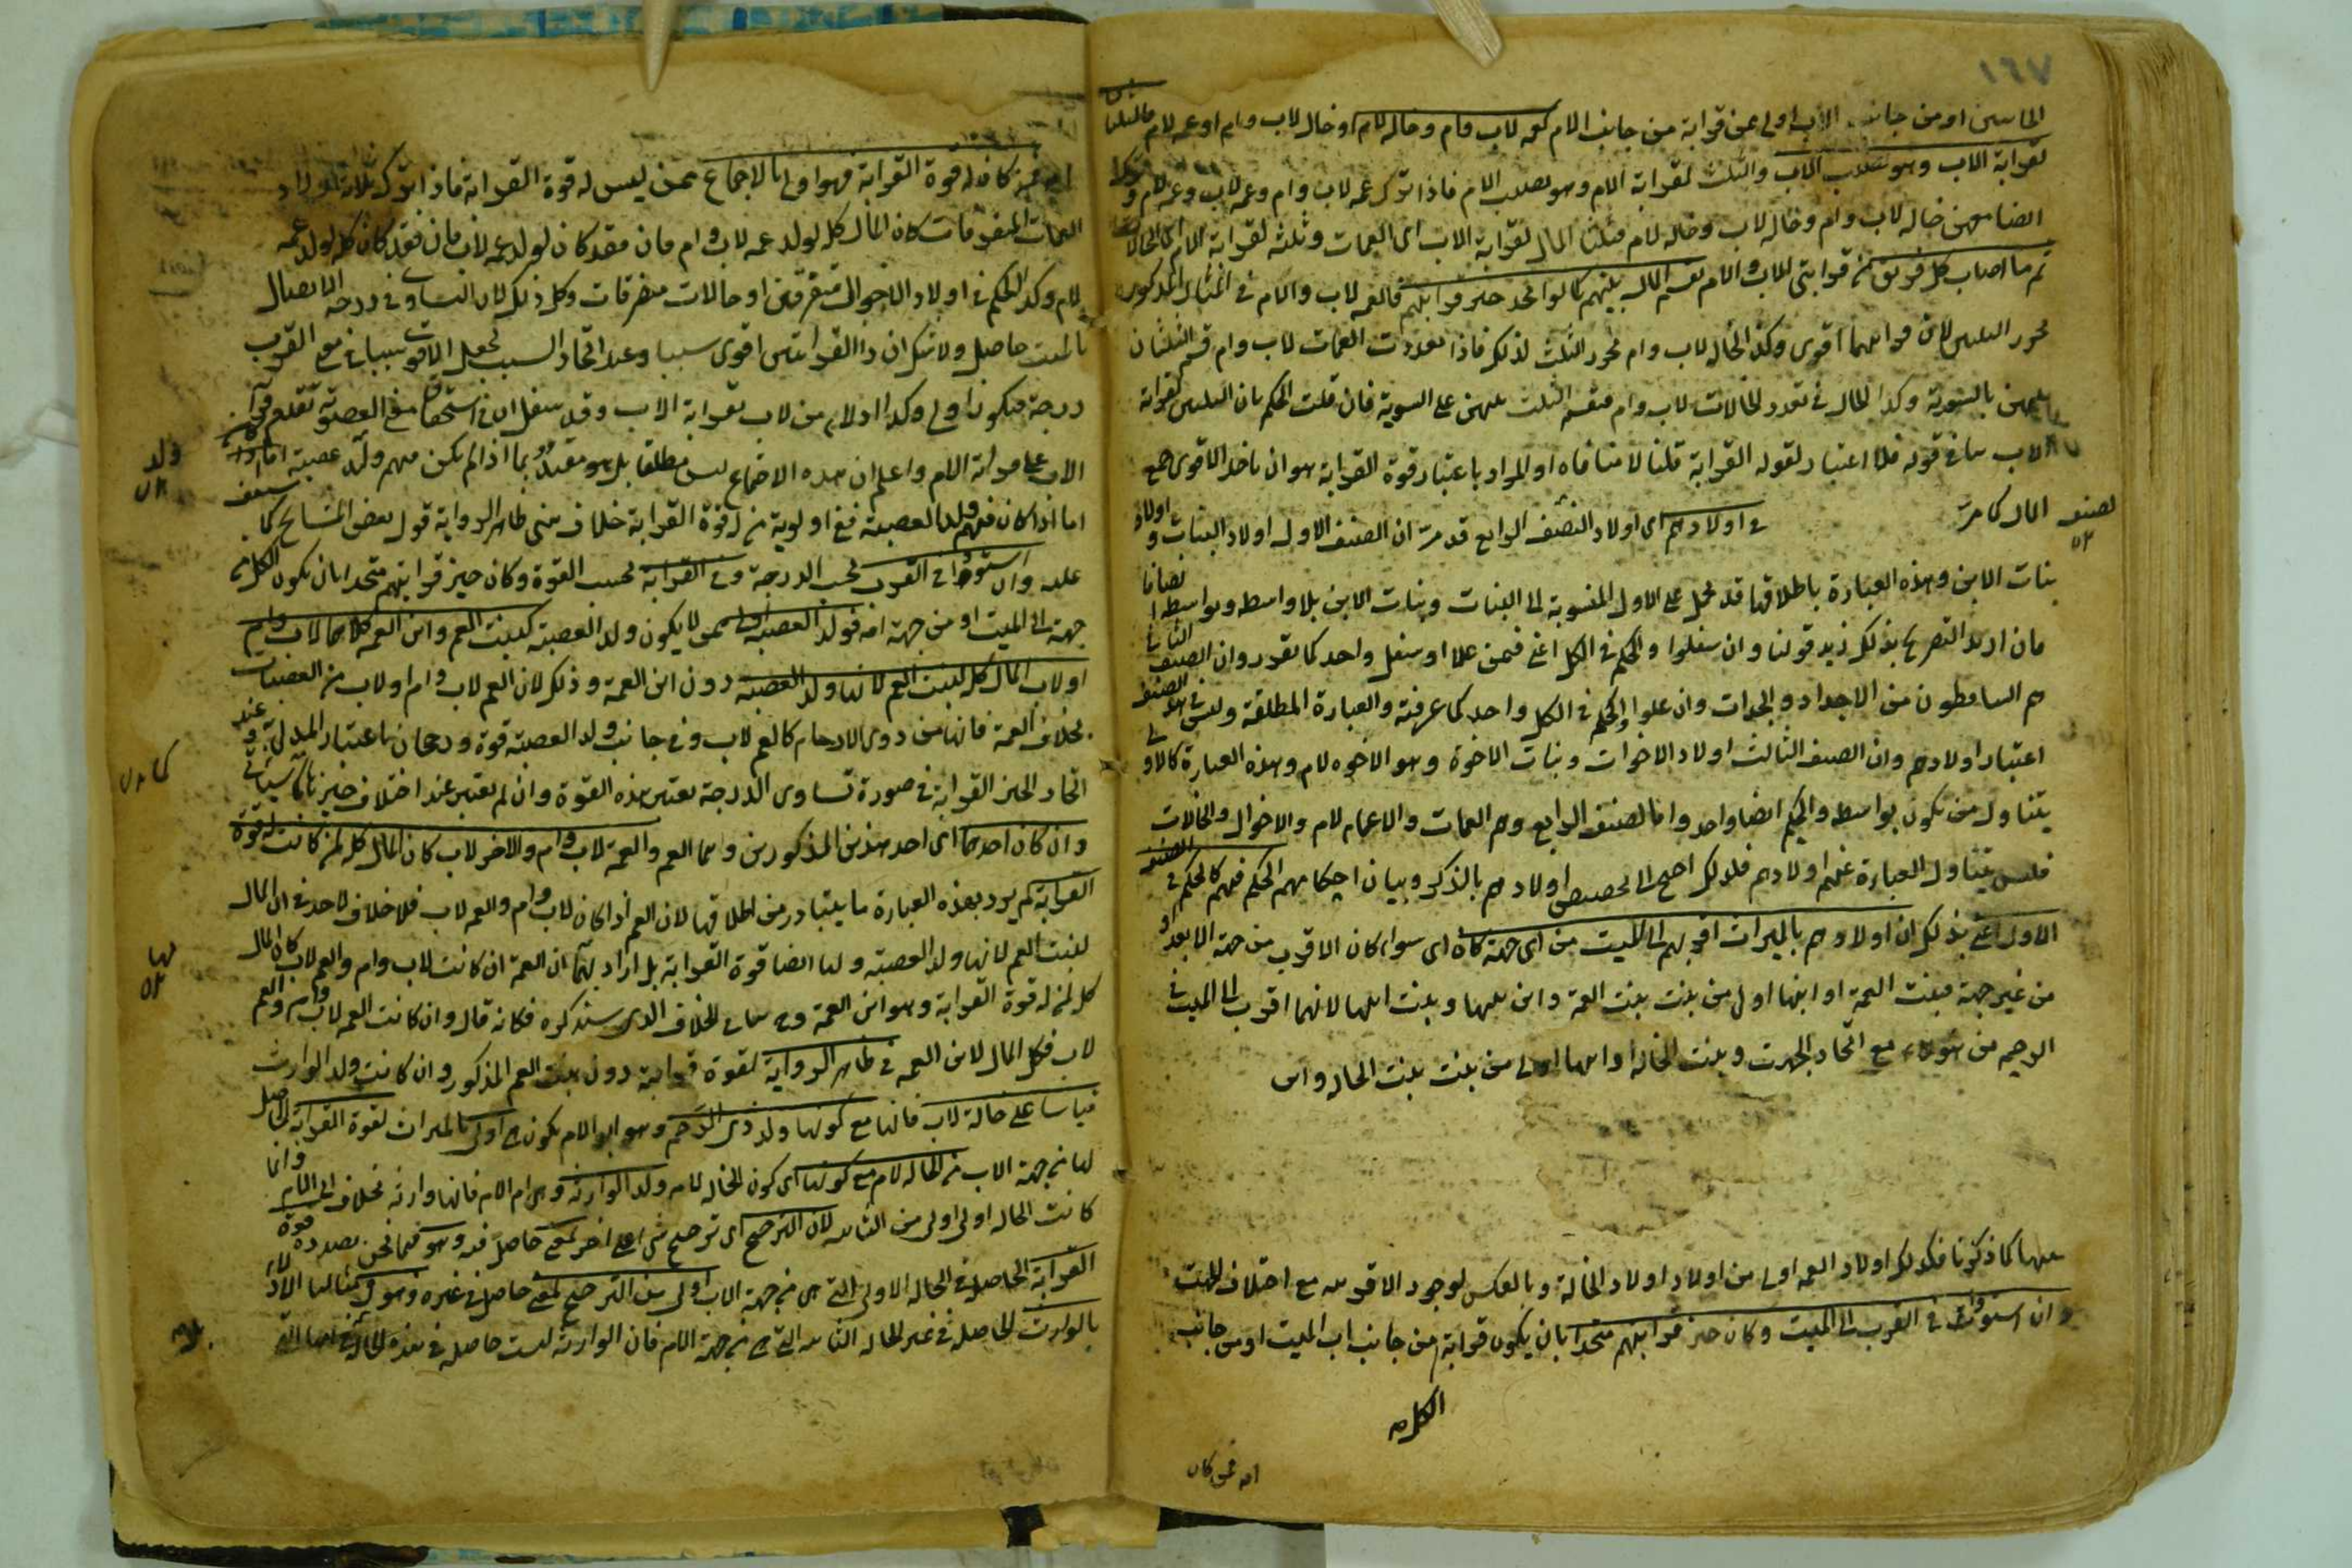 ١٦٧
او من جانب الاب اولى عن قرابة من جانب الام كعمة لاب وام وخالة لام او خال لاب وام او عمة لام فالثلثان
لقرابة الاب وهو نصيب الاب والثلث لقرابة الام وهو نصيب الام فاذا ترك عمة لاب وام وعمة لاب وعمة لام وترك
ايضا معهن خالة لاب وام وخالة لاب وخالة لام فثلثا المال لقرابة الاب اى العمات وثلثه لقرابة الام اى الخالات
ثم ما اصاب كل فريق من قرابتى الاب والام يقسم المال بينهم كما لو اتحد حيز قرابتهم فالعمة لاب والام فى المثال المذكور
تحرز الثلثين لان قرابتها اقوى وكذا الخالة لاب وام تحرز الثلث لذلك فاذا تعددت العمات لاب وام قسم الثلثان
بينهن بالسوية وكذا الحال فى تعدد الخالات لاب وام فيقسم الثلث بينهن على السوية فان قلت الحكم بان الثلثين لقرابة
الاب ينافى قوله فلا اعتبار لقوة القرابة قلنا لا منافاة اذ المراد باعتبار قوة القرابة هو ان ياخذ الاقوى جميع
المال كما مر
فى اولادهم اى اولاد الصنف الرابع قد مر ان الصنف الاول اولاد البنات واولاد
بنات الابن وهذه العبارة باطلاقها قد تحمل على الاول المنسوبة الى البنات وبنات الابن بلا واسطة وبواسطة ايضا
فان اريد التصريح بذلك زيد قولنا وان سفلوا والحكم فى الكل اعنى فيمن علا او سفل واحد كما تقرر وان الصنف الثانى
هم الساقطون من الاجداد والجدات وان علوا والحكم فى الكل واحد كما عرفته والعبارة المطلقة وليس فى هذا الصنف
اعتبار اولادهم وان الصنف الثالث اولاد الاخوات وبنات الاخوة وبنو الاخوة لام وهذه العبارة كالاولى
يتناول من يكون بواسطة والحكم ايضا واحد واما الصنف الرابع وهم العمات والاعمام لام والاخوال والخالات
فليس يتناول العبارة عنهم اولادهم فلذلك احتيج الى تخصيص اولادهم بالذكر وبيان احكامهم الحكم فيهم كالحكم فى الصنف
الاول اعنى بذلك ان اولاهم بالميراث اقربهم الى الميت من اى جهة كان اى سواء كان الاقرب من جهة الابعد او
من غير جهة فبنت العمة او ابنها اولى من بنت بنت العمة وابن بنتها وبنت ابنها لانهما اقرب الى الميت فى
الدرجة من هؤلاء مع اتحاد الجهة وبنت الخالة او ابنها اولى من بنت بنت الخالة وابن
بنتها كما ذكرنا فكذلك اولاد العمة اولى من اولاد اولاد الخالة وبالعكس لوجود الاقربية مع اختلاف الجهة
وان استووا فى القرب الى الميت وكان حيز قرابتهم متحدا بان يكون قرابة من جانب اب الميت او من جانب
الكل
امه فمن كان
امه فمن كان له قوة القرابة فهو اولى بالاجماع ممن ليس له قوة القرابة فاذا ترك ثلاثة اولاد
العمات المتفرقات كان المال كله لولد عمة لاب وام فان فقد كان لولد عمة لاب فان فقد كان كله لولد عمة
لام وكذا الحكم فى اولاد الاخوال متفرقين او خالات متفرقات وكل ذلك لان التساوى فى درجة الاتصال
بالميت حاصل ولا شك ان ذا القرابتين اقوى سببا وعند اتحاد السبب يجعل الاقوى سببا فى معنى القرب
درجة فيكون اولى وكذا الادلاء من لاب بقرابة الاب وقد سبقك ان فى استحقاق معنى العصوبة تقدم قرابة
الاب على قرابة الام واعلم ان هذه الاجماع ليس مطلقا بل هو مقيد بما اذا لم يكن منهم ولد عصبة
اما اذا كان فيهم ولد العصبة ففى اولوية من له قوة القرابة خلاف بين ظاهر الرواية قول بعض المشايخ كما ستقف
عليه وان استووا فى القرب بحسب الدرجة وفى القرابة بحسب القوة وكان حيز قرابتهم متحدا بان يكون الكل من
جهة اب الميت او من جهة امه فولد العصبة اولى ممن لا يكون ولد العصبة كبنت العم وابن العمة كلاهما لاب وام
او لاب المال كله لبنت العم لانها ولد العصبة دون ابن العمة وذلك لان العم لاب وام او لاب من العصبات
بخلاف العمة فانها من ذوى الارحام كالعم لاب وفى جانب ولد العصبة قوة ورجحان باعتبار المدلى به وعند
اتحاد الحيز القرابة فى صورة تساوى الدرجة يعتبر هذه القوة وان لم يعتبر عند اختلاف حيزها كما سيأتى
وان كان احدهما اى احد هذين المذكورين وهما العم والعمة لاب وام والاخر لاب كان المال كله لمن كانت له قوة
القرابة لم يرد بهذه العبارة ما يتبادر من اطلاقها لان العم اذا كان لاب وام والعمة لاب فلا خلاف لاحد فى ان المال
لبنت العم لانها ولد العصبة ولها ايضا قوة القرابة بل اراد بها ان العمة ان كانت لاب وام والعم لاب كان المال
كله لمن له قوة القرابة وهو ابن العمة وهى للخلاف الذى سيذكره فكانه قال وان كانت العمة لاب وام والعم
لاب فكل المال لابن العمة فى ظاهر الرواية لقوة قرابته دون بنت العم المذكور وان كانت ولد الوارث
قياسا على خالة لاب فانها مع كونها ولد ذى الرحم وهو اب الام يكون هى اولى بالميراث لقوة القرابة الحاصل
لها من جهة الاب من الخالة لام مع كونها اى كون الخالة لام ولد الوارثة وهى ام الام فانها وارثة بخلاف اب الام وانما
كانت الخالة اولى اولى من الثانية لان الترجيح اى ترجيح شئ على اخر لمعنى حاصل فيه وهو فيما نحن بصدده قوة
القرابة الحاصل فى الخالة الاولى التى هى من جهة الاب اولى من الترجيح لمعنى حاصل فى غيره وهو فى مثالنا الادلاء
بالوارث الحاصل فى غير الخالة الثانية التى هى من جهة الام فان الوارثة ليست حاصلة فى هذه الخالة